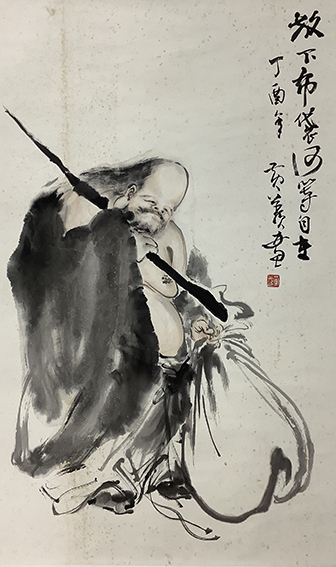 放下布袋何等自在
丁酉年 黄羲畫